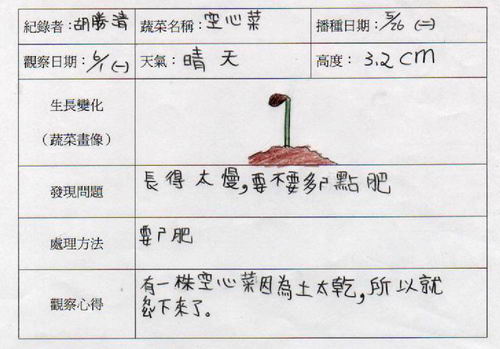 紀錄者：胡勝清 蔬菜名稱：空心菜 播種日期：5/26 (二)
觀察日期：6/1 (一) 天氣：晴天 高度：3.2cm
生長變化
（蔬菜畫像）
發現問題 長得太慢,要不要多ㄕ點肥
處理方法 要ㄕ肥
觀察心得 有一株空心菜因為土太乾,所以就
下來了。